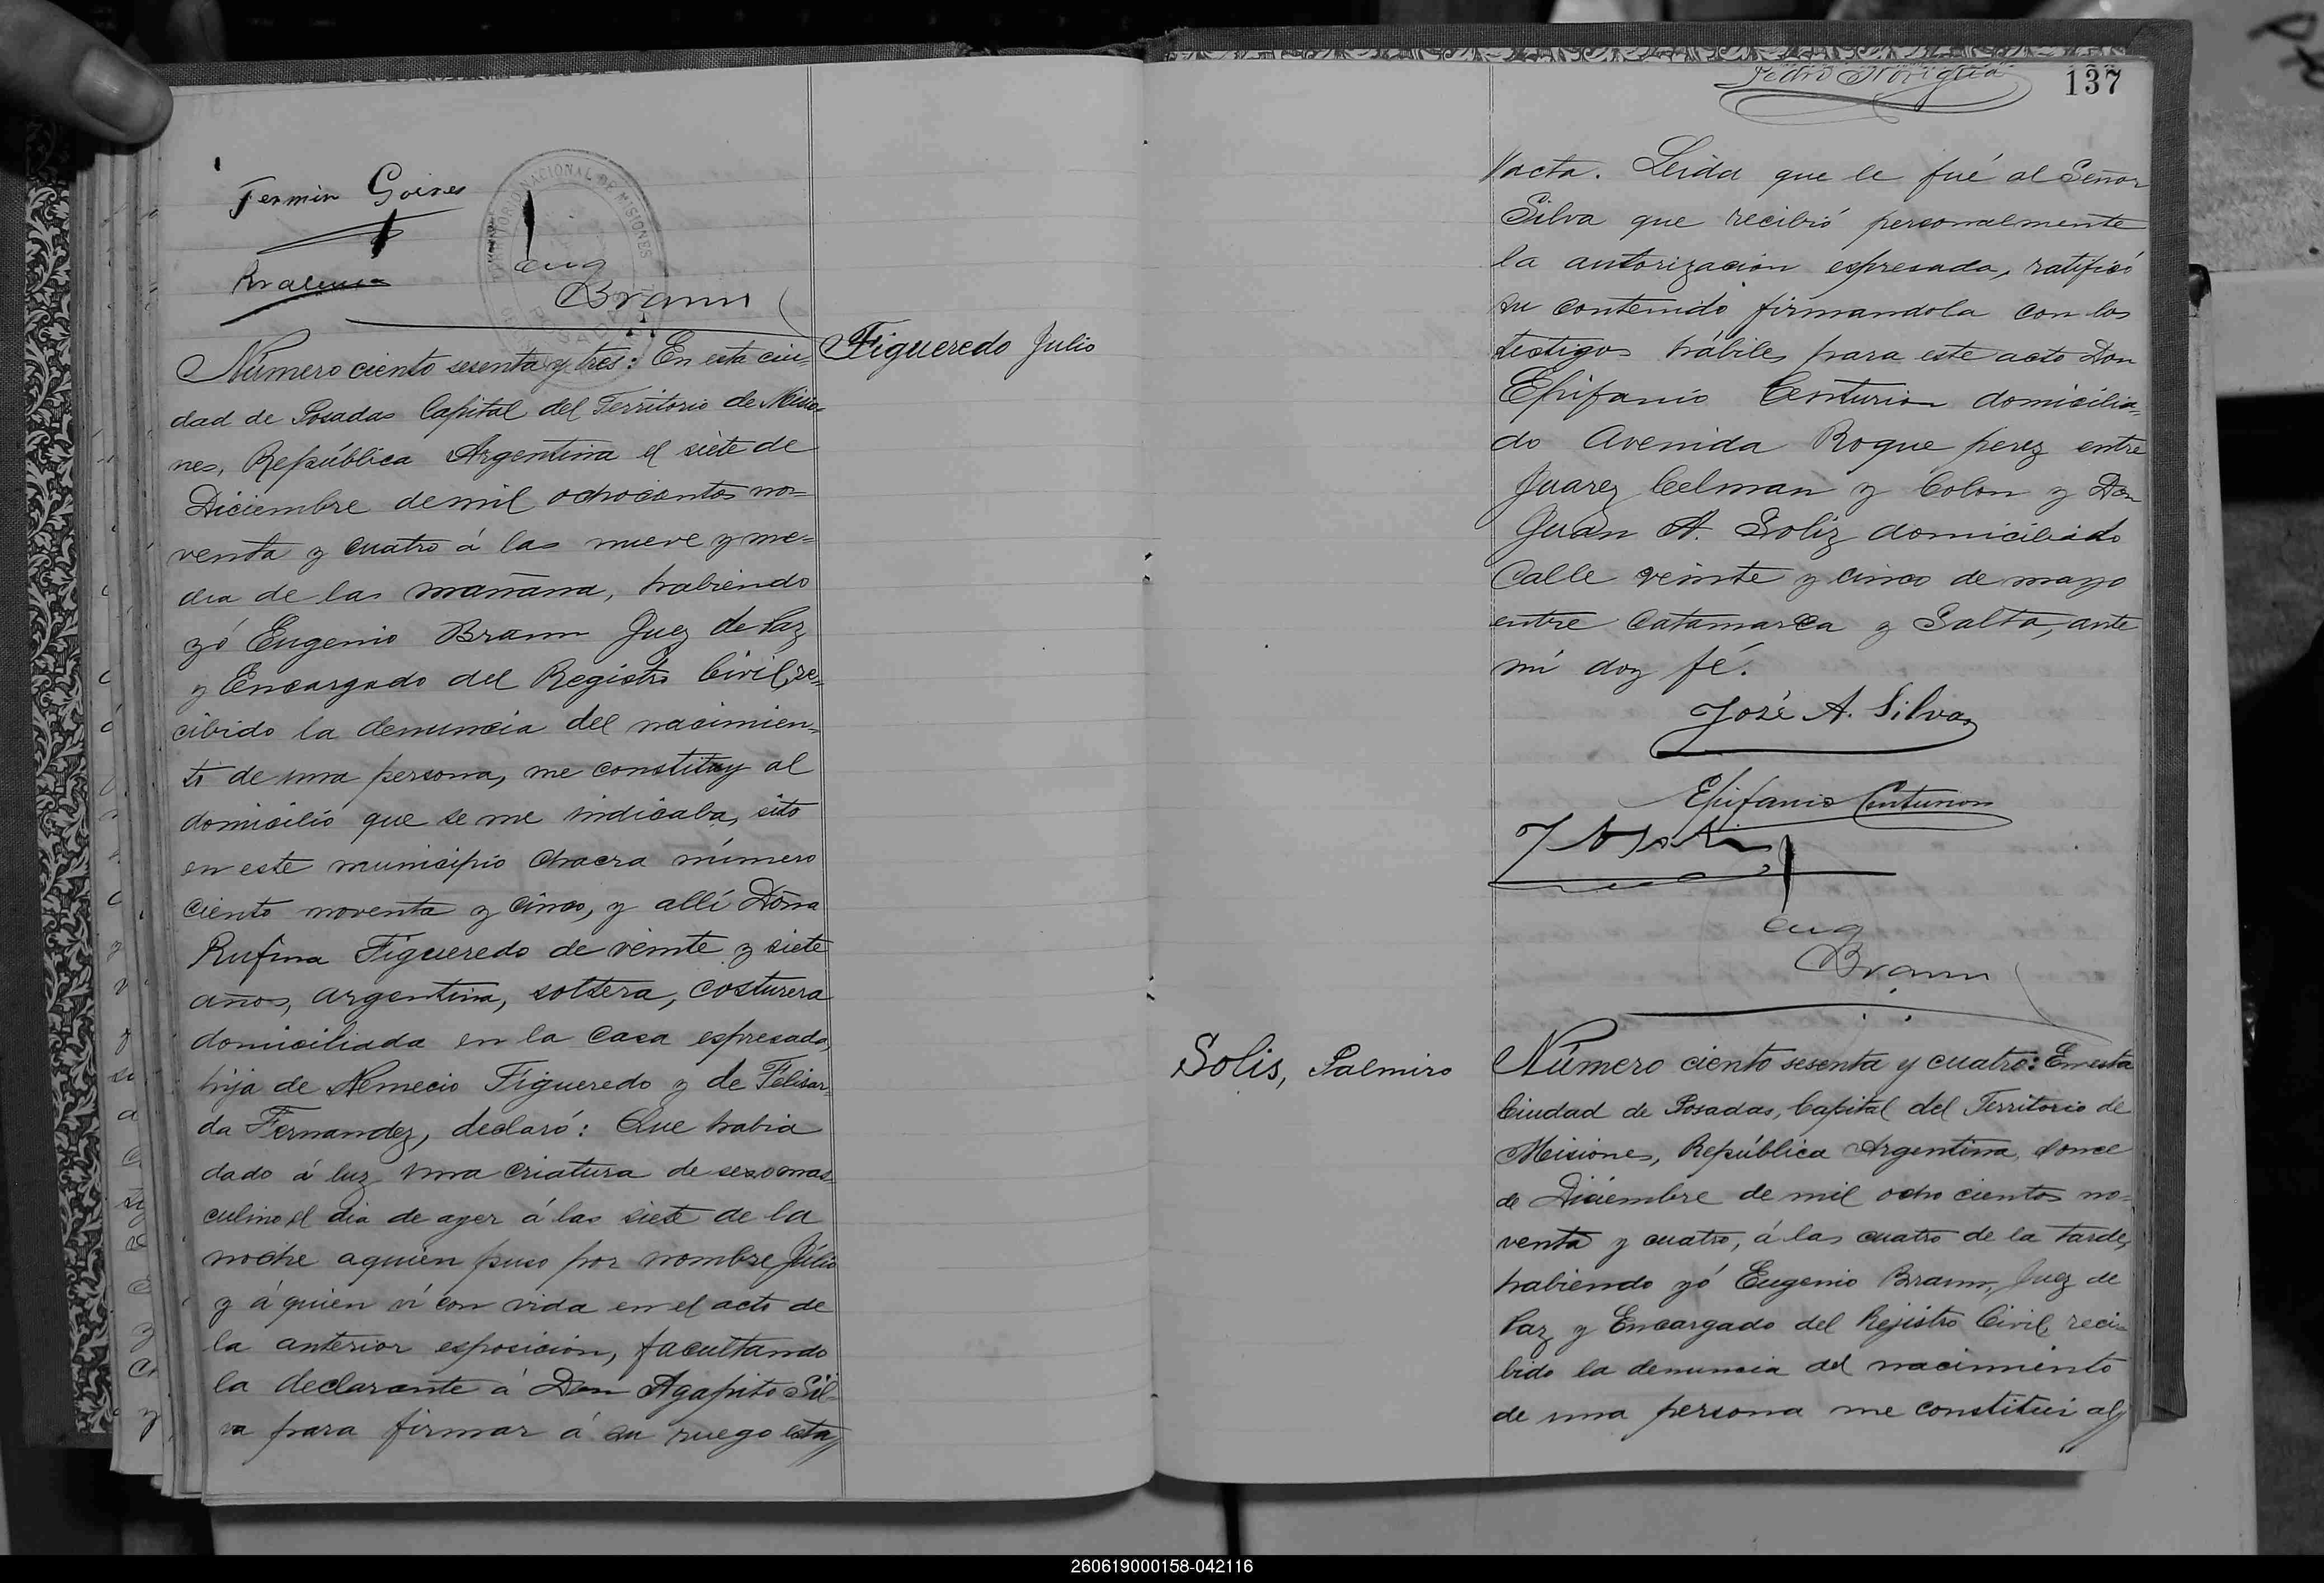 Fermin Goires
TERRITORIO NACIONAL DE MISIONES
Eug
Braun
Figueredo Julio
Número ciento sesenta y tres: En esta ciu-
dad de Posadas Capital del Territorio de Misio-
nes, República Argentina el siete de
Diciembre de mil ochocientos no=
venta y cuatro á las nueve y me=
dia de las mañana, habiendo
yó Eugenio Braun Juez de Paz
y Encargado del Registro Civil, re-
cibido la denuncia del nacimien-
to de una persona, me constituy al
domicilio que se me indicaba, sito
en este municipio chacra número
ciento noventa y cinco, y allí Doña
Rufina Figueredo de veinte y siete
años, argentina, soltera, costurera
domiciliada en la casa espresada,
hija de Nemecio Figueredo y de Felisar-
da Fernandez, declaró: Que habia
dado á luz una criatura de sexo mas-
culino el dia de ayer á las siete de la
noche a quien puso por nombre Júlio
y á quien ví con vida en el acto de
la anterior esposicion, facultando
la declarante á Don Agapito Sil-
va para firmar á su ruego esta//
Pedro Noriega
137
//acta. Leida que le fué al Señor
Silva que recibió personalmente
la autorizacion espresada, ratificó
su contenido firmandola con los
testigos hábiles para este acto Don
Epifanio Centurion domicilia-
do Avenida Roque perez entre
Juarez Celman y Colon y Don
Juan A. Soliz domiciliado
Calle veinte y cinco de mayo
entre Catamarca y Salta, ante
mí doy fé.
José A. Silva
Epifanio Centurion
Eug
Braun
Solis, Palmiro
Número ciento sesenta y cuatro: En esta
Ciudad de Posadas, Capital del Territorio de
Misiones, República Argentina, donce
de Diciembre de mil ocho cientos no-
venta y cuatro, á las cuatro de la tarde,
habiendo yó Eugenio Braun, Juez de
Paz y Encargado del Rejistro Civil, reci-
bido la denuncia del nacimiento
de una persona me constituí al//
260619000158-042116